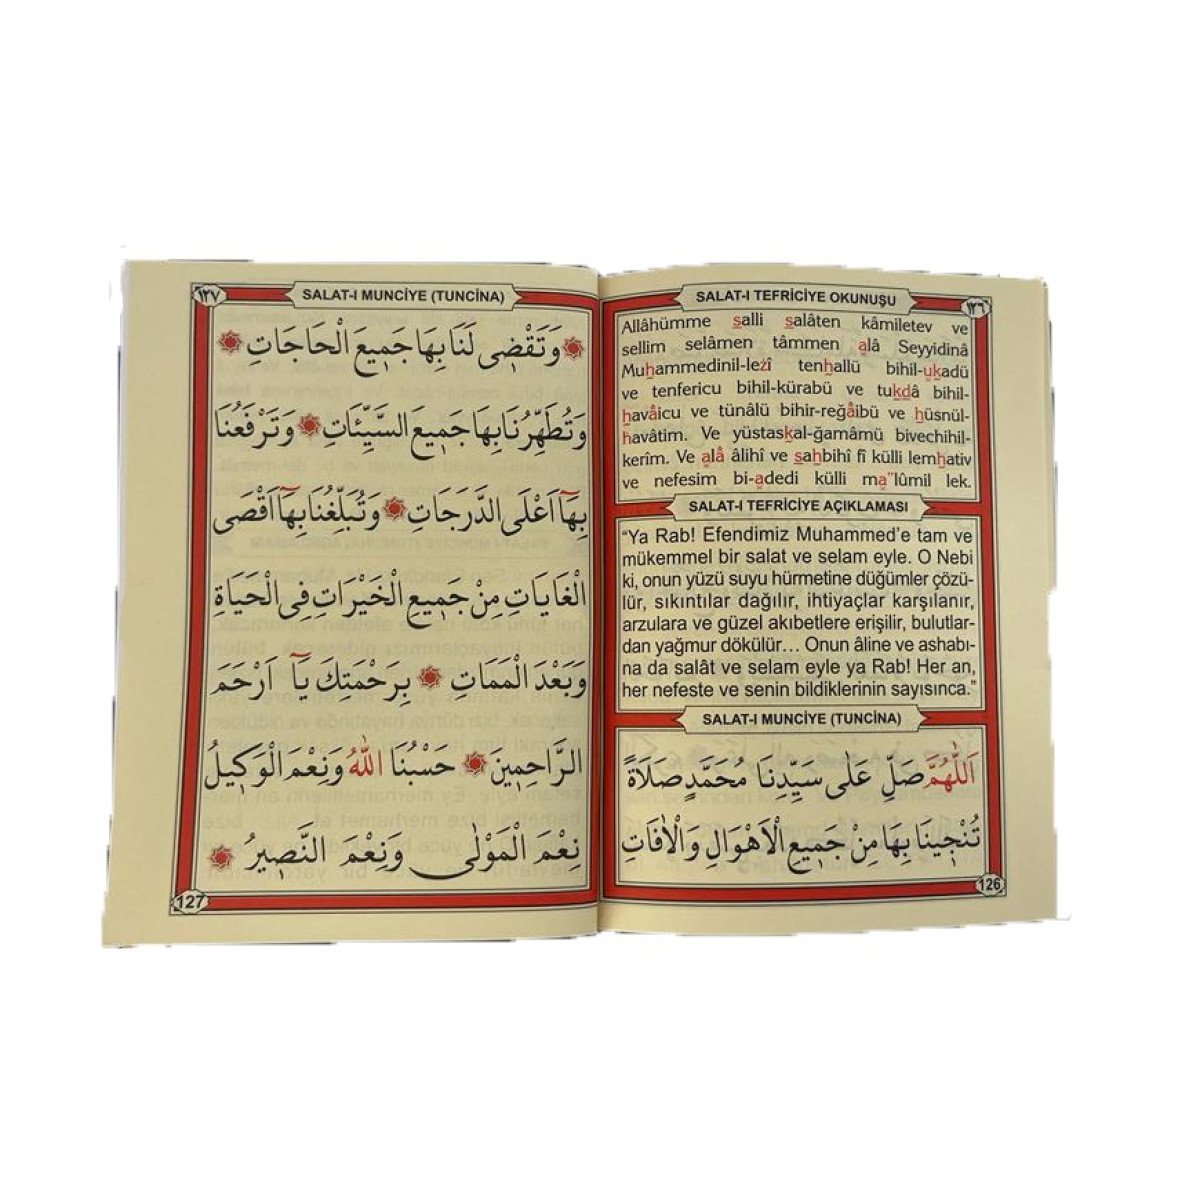 SALAT-I TEFRİCİYE OKUNUŞU
١٢٦
Allâhümme salli salâten kâmiletev ve
sellim selâmen tâmmen alâ Seyyidinâ
Muhammedinil-lezî tenhallü bihil-ukadü
ve tenfericu bihil-kürabü ve tukdâ bihil-
havâicu ve tünâlü bihir-reğâibü ve hüsnül-
havâtim. Ve yüstaskal-ğamâmü bivechihil-
kerîm. Ve alâ âlihî ve sahbihî fî külli lemhativ
ve nefesim bi-adedi külli ma"lûmil lek.
SALAT-I TEFRİCİYE AÇIKLAMASI
“Ya Rab! Efendimiz Muhammed’e tam ve
mükemmel bir salat ve selam eyle. O Nebi
ki, onun yüzü suyu hürmetine düğümler çözü-
lür, sıkıntılar dağılır, ihtiyaçlar karşılanır,
arzulara ve güzel akıbetlere erişilir, bulutlar-
dan yağmur dökülür… Onun âline ve ashabı-
na da salât ve selam eyle ya Rab! Her an,
her nefeste ve senin bildiklerinin sayısınca.”
SALAT-I MUNCİYE (TUNCİNA)
اَللّٰهُمَّ صَلِّ عَلٰى سَيِّدِنَا مُحَمَّدٍ صَلَاةً
تُنْجِينَا بِهَا مِنْ جَمِيعِ الْاَهْوَالِ وَالْاٰفَاتِ
126
١٢٧
SALAT-I MUNCİYE (TUNCİNA)
وَتَقْضِى لَنَا بِهَا جَمِيعَ الْحَاجَاتِ
وَتُطَهِّرُنَا بِهَا جَمِيعَ السَّيِّئَاتِ وَتَرْفَعُنَا
بِهَٓا اَعْلَى الدَّرَجَاتِ وَتُبَلِّغُنَا بِهَٓا اَقْصَى
الْغَايَاتِ مِنْ جَمِيعِ الْخَيْرَاتِ فِى الْحَيَاةِ
وَبَعْدَ الْمَمَاتِ بِرَحْمَتِكَ يَٓا اَرْحَمَ
الرَّاحِمِينَ حَسْبُنَا اللّٰهُ وَنِعْمَ الْوَكِيلُ
نِعْمَ الْمَوْلٰى وَنِعْمَ النَّصِيرُ
127